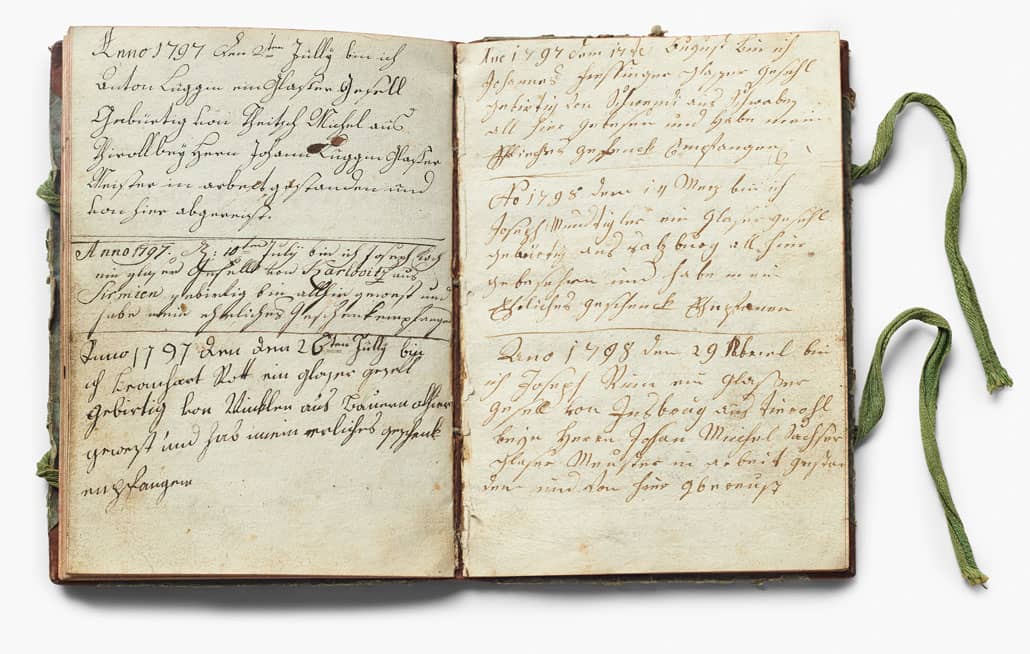 Anno 1797 den 2ten Jully bin ich
Anton Luggin ein Glaser Gesell
Gebürtig von Michel aus
Tiroll bey Herrn Johann Luggin Glaser
Meister in arbeit gestanden und
von hier abgereist.
Anno 1797. D: 10ten July bin ich Joseph
ein glaser Gesell von Karlovitz aus
Sirmien gebirtig bin allhir gewest und
habe mein ehrliches Geschenk empfangen
Anno 1797 den den 26ten Jully bin
ich Leonhart Rott ein glaser gesell
gebirtig von aus Bauern alhier
gewest und hab mein erliches geschenk
empfangen
Ano 1797 dem 17te August bin ich
Johannes glaser gesehl
gebirtig von Schwendi aus Schwaben
all hier gewesen und habe mein
geschenck Empfangen
Ao 1798 dem 14 Merz bin ich
Joseph ein glaser gesehl
gebürtig aus Salzburg all hier
und habe mein
Ehrliches geschenck
Ano 1798 den 29 bin
ich Joseph ein glaßer
gesell von Insboug aus Tierohl
beyn Herrn Johan Michel
glaser Meuster in arbeit gestan
den und von hier